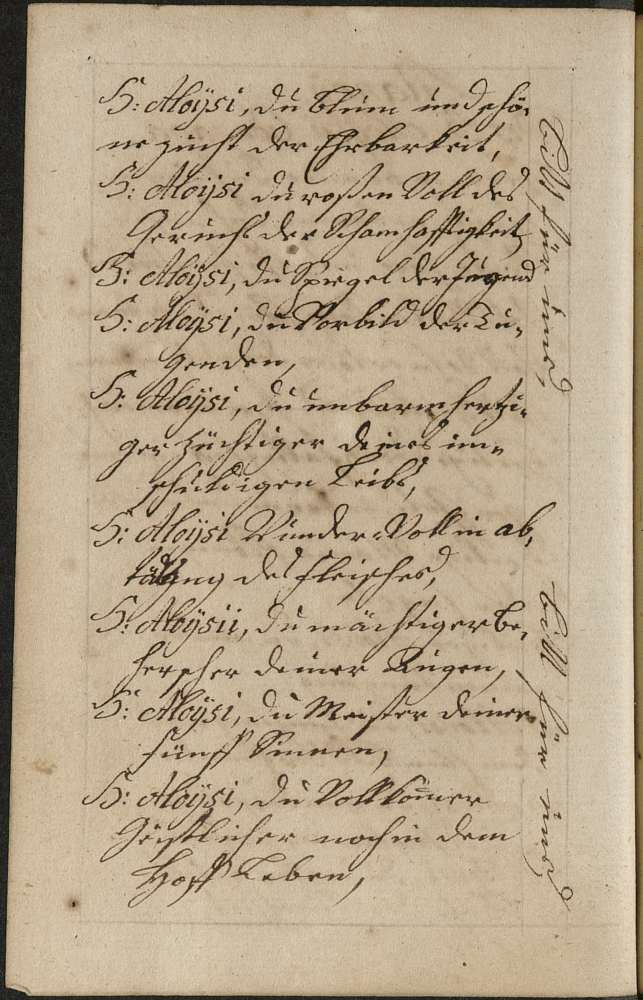 H: Aloÿsi, du blum und schö„
ne zucht der Ehrbarkeit,
H: Aloÿsi du rosen Voll des
Geruchs der Schamhafftigkeit,
H: Aloÿsi, du Spiegel der Jugend
H: Aloÿsi, du Vorbild der Tu„
genden,
H: Aloÿsi, du unbarmhertzi„
ger züchtiger deines un„
schuldigen Leibs,
H: Aloÿsi Wunder-Voll in ab„
tödung des fleisches,
H: Aloÿsii, du mächtiger be„
herscher deiner Augen,
H: Aloÿsi, du Meister deiner
fünff Sinnen,
H: Aloÿsi, du Vollkomer
Geistlicher noch in dem
Hoff Leben,
bitt für uns,
bitt für uns